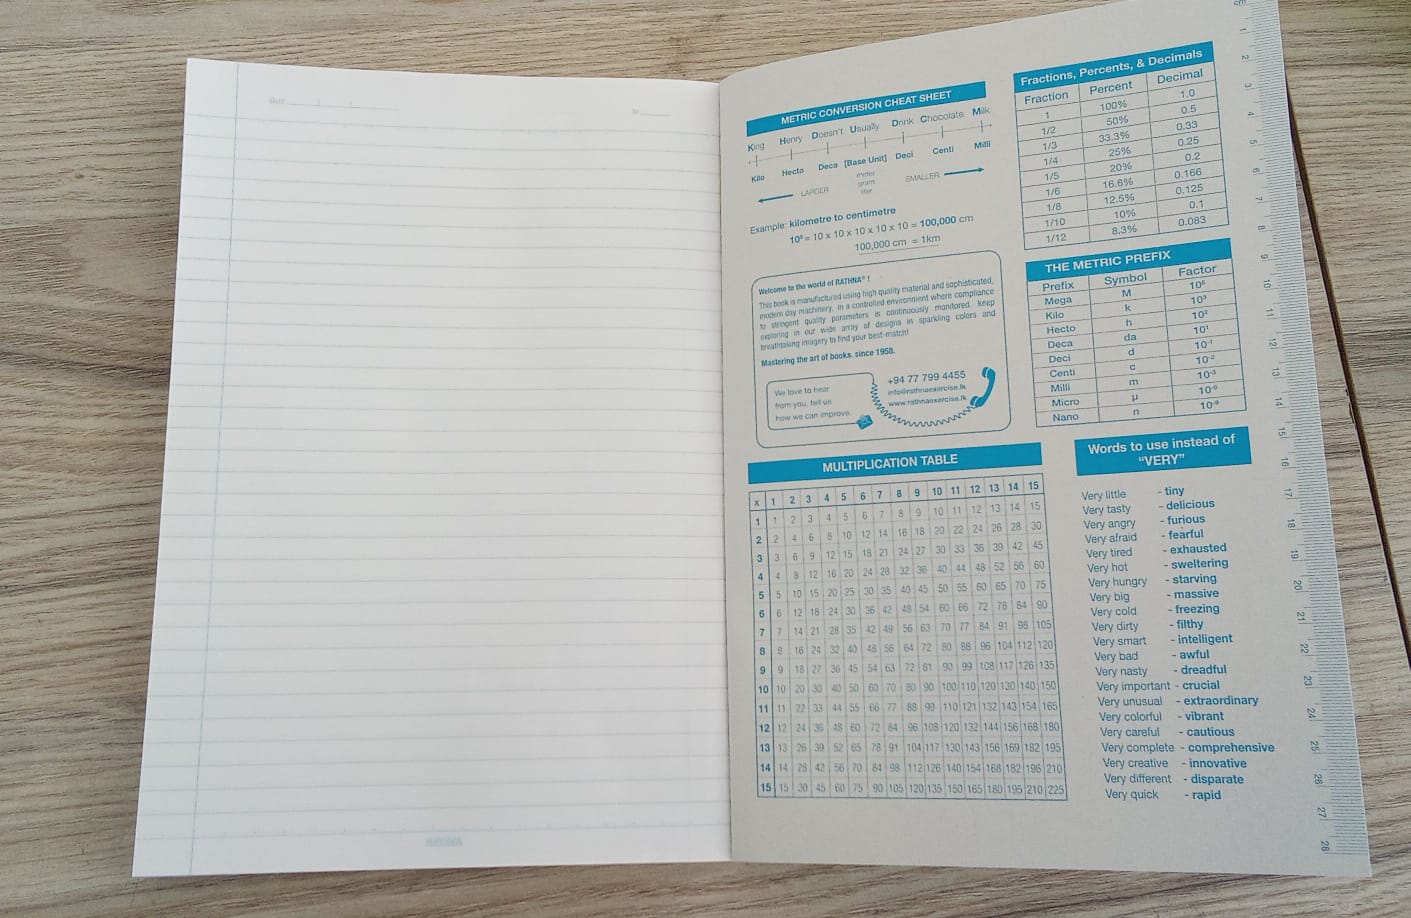 METRIC CONVERSION CHEAT SHEET
King Henry Doesn't Usually Drink Chocolate Milk
Kilo Hecto Deca [Base Unit] Deci Centi Milli
meter
gram
liter
LARGER SMALLER
Example: kilometre to centimetre
10⁵ = 10 x 10 x 10 x 10 x 10 = 100,000 cm
100,000 cm = 1km
Welcome to the world of RATHNA® !
This book is manufactured using high quality material and sophisticated,
modern day machinery, in a controlled environment where compliance
to stringent quality parameters is continuously monitored. keep
exploring in our wide array of designs in sparkling colors and
breathtaking imagery to find your best-match!
Mastering the art of books. since 1958.
We love to hear
from you, tell us
how we can improve.
+94 77 799 4455
info@rathnaexercise.lk
www.rathnaexercise.lk
MULTIPLICATION TABLE
x 1 2 3 4 5 6 7 8 9 10 11 12 13 14 15
1 1 2 3 4 5 6 7 8 9 10 11 12 13 14 15
2 2 4 6 8 10 12 14 16 18 20 22 24 26 28 30
3 3 6 9 12 15 18 21 24 27 30 33 36 39 42 45
4 4 8 12 16 20 24 28 32 36 40 44 48 52 56 60
5 5 10 15 20 25 30 35 40 45 50 55 60 65 70 75
6 6 12 18 24 30 36 42 48 54 60 66 72 78 84 90
7 7 14 21 28 35 42 49 56 63 70 77 84 91 98 105
8 8 16 24 32 40 48 56 64 72 80 88 96 104 112 120
9 9 18 27 36 45 54 63 72 81 90 99 108 117 126 135
10 10 20 30 40 50 60 70 80 90 100 110 120 130 140 150
11 11 22 33 44 55 66 77 88 99 110 121 132 143 154 165
12 12 24 36 48 60 72 84 96 108 120 132 144 156 168 180
13 13 26 39 52 65 78 91 104 117 130 143 156 169 182 195
14 14 28 42 56 70 84 98 112 126 140 154 168 182 196 210
15 15 30 45 60 75 90 105 120 135 150 165 180 195 210 225
Fractions, Percents, & Decimals
Fraction Percent Decimal
1 100% 1.0
1/2 50% 0.5
1/3 33.3% 0.33
1/4 25% 0.25
1/5 20% 0.2
1/6 16.6% 0.166
1/8 12.5% 0.125
1/10 10% 0.1
1/12 8.3% 0.083
THE METRIC PREFIX
Prefix Symbol Factor
Mega M 10⁶
Kilo k 10³
Hecto h 10²
Deca da 10¹
Deci d 10⁻¹
Centi c 10⁻²
Milli m 10⁻³
Micro µ 10⁻⁶
Nano n 10⁻⁹
Words to use instead of
“VERY”
Very little - tiny
Very tasty - delicious
Very angry - furious
Very afraid - fearful
Very tired - exhausted
Very hot - sweltering
Very hungry - starving
Very big - massive
Very cold - freezing
Very dirty - filthy
Very smart - intelligent
Very bad - awful
Very nasty - dreadful
Very important - crucial
Very unusual - extraordinary
Very colorful - vibrant
Very careful - cautious
Very complete - comprehensive
Very creative - innovative
Very different - disparate
Very quick - rapid
cm
1
2
3
4
5
6
7
8
9
10
11
12
13
14
15
16
17
18
19
20
21
22
23
24
25
26
27
28